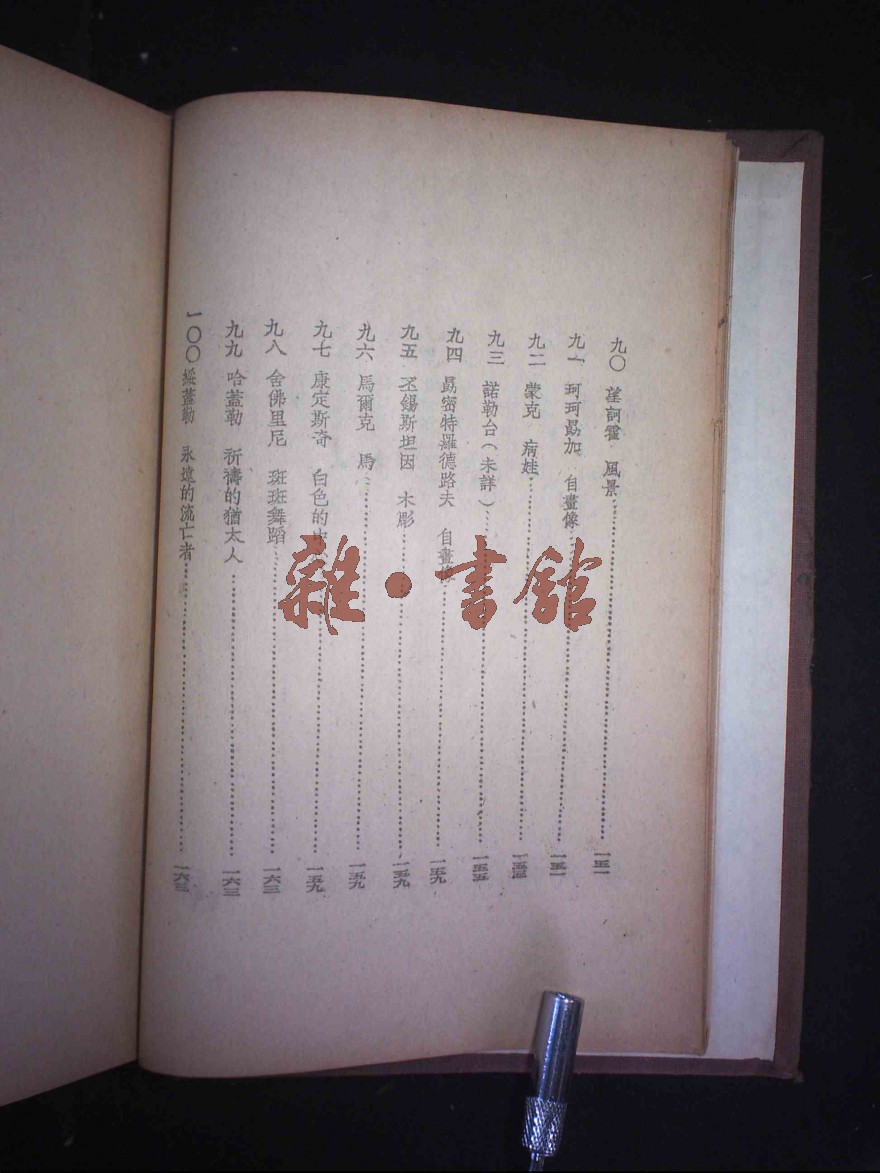 九〇 望訶霍 風景 一五一
九一 珂珂勗加 自畫像 一五一
九二 蒙克 病娃 一五三
九三 諾勒台(未詳) 一五五
九四 勗密特羅德路夫 自畫像 一五九
九五 丕錫斯坦因 木彫 一五九
九六 馬爾克 馬 一五九
九七 康定斯奇 白色的中 一五九
九八 舍佛里尼 斑斑舞蹈 一六三
九九 哈蓋勒 祈禱的猶太人 一六三
一〇〇 綏蓋勒 永遠的流亡者 一六三
雜·書館